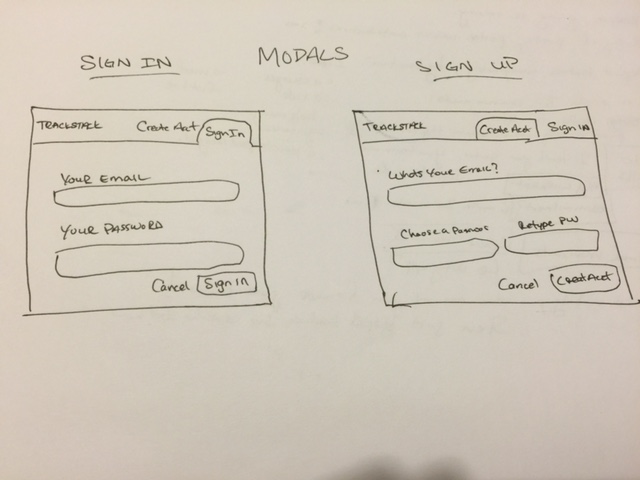 MODALS
SIGN IN
TRACKSTACK Create Acct Sign In
YOUR EMAIL
YOUR PASSWORD
Cancel Sign In
SIGN UP
TRACKSTACK Create Acct Sign in
Whats Your Email?
Choose a Retype PW
Cancel Creat Acct